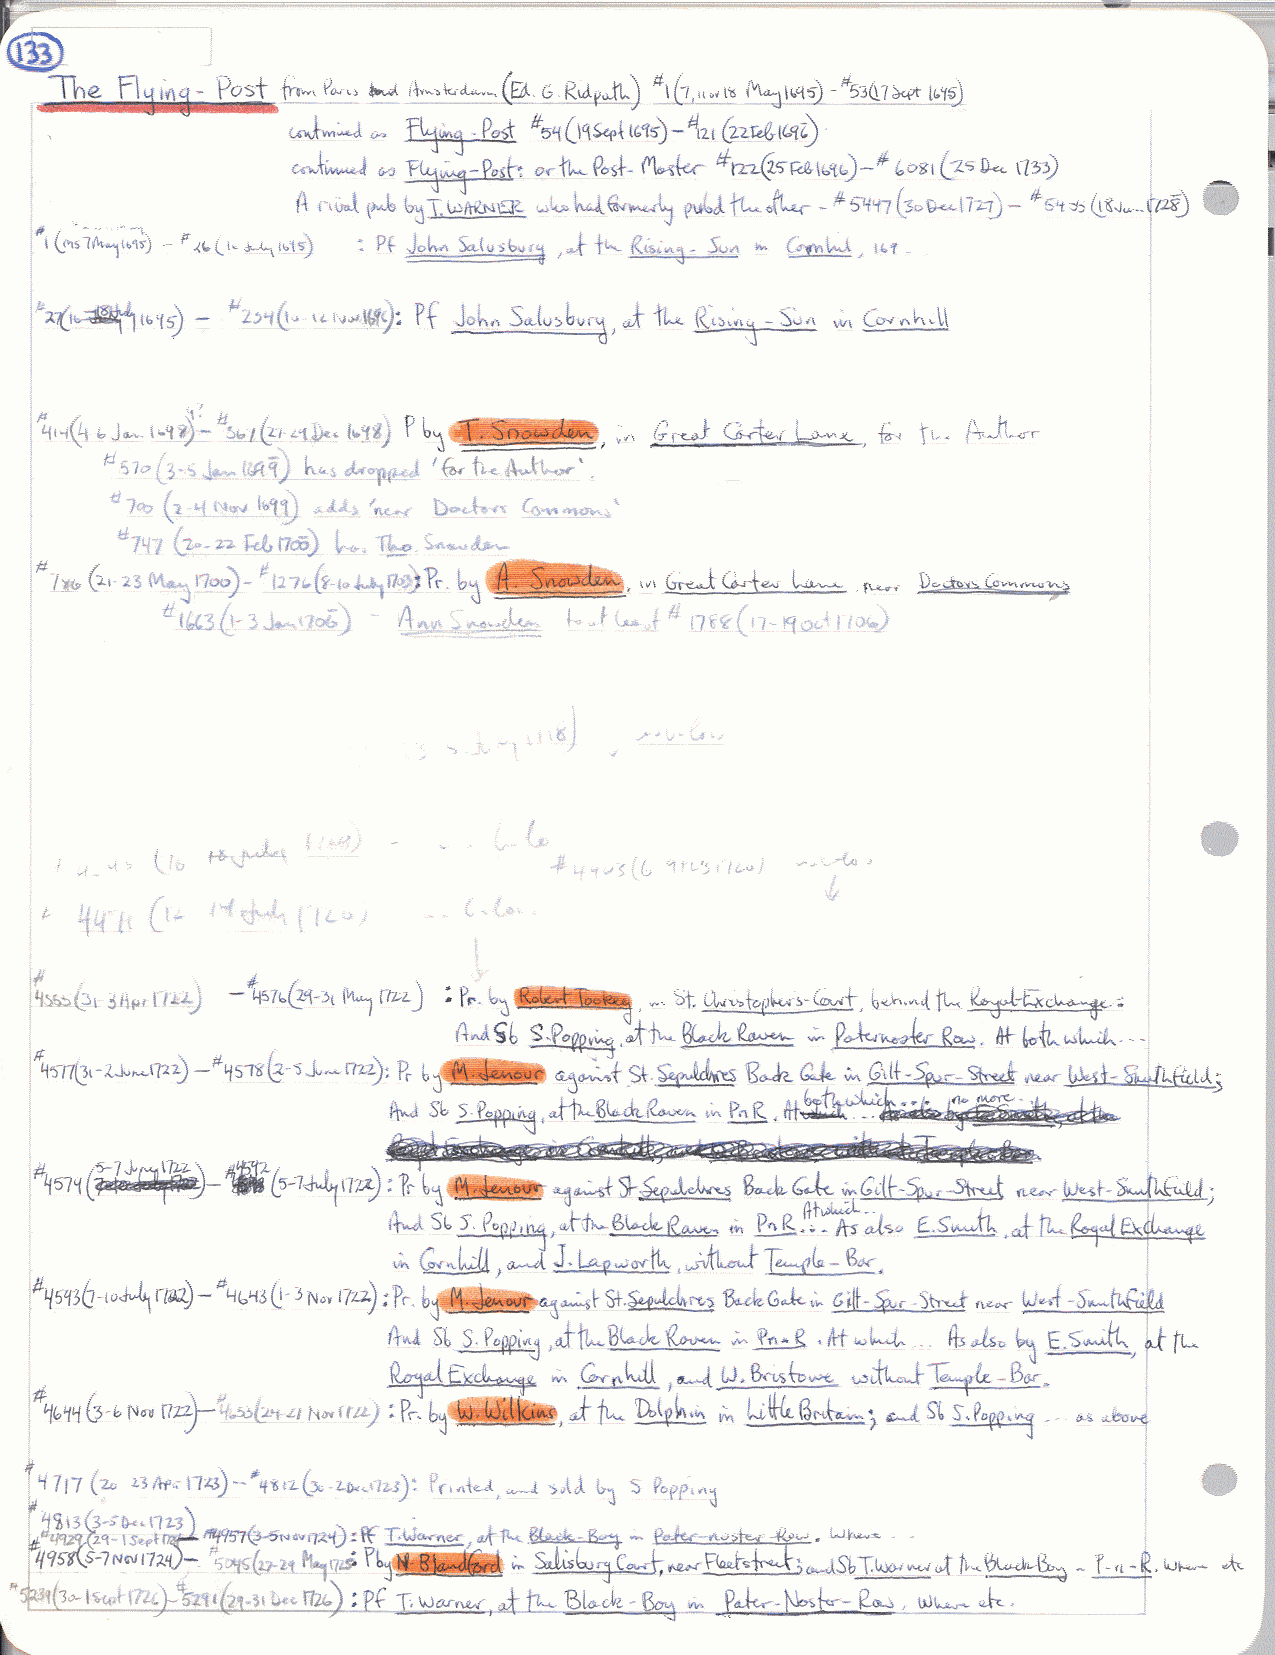 133
The Flying-Post from Paris and Amsterdam (Ed. G. Ridpath) #1 (7, 11 or 18 May 1695) - #53 (17 Sept 1695)
continued as Flying-Post #54 (19 Sept 1695) - #121 (22 Feb 1696)
continued as Flying-Post: or the Post-Master #122 (25 Feb 1696) - #6081 (25 Dec 1733)
A rival pub by T. WARNER who had formerly pubd the other - #5447 (30 Dec 1727) - #5455 (18 Jan 1728)
#1 (ms 7 May 1695) - #26 (July 1695) : Pf John Salusbury, at the Rising-Sun in Cornhil, 169
#27 (16-18 July 1695) - #234 (10-12 Nov 1696): Pf John Salusbury, at the Rising-Sun in Cornhill
#414 (4-6 Jan 1698) - #567 (27-29 Dec 1698) P by T. Snowden, in Great Carter Lane, for the Author
#570 (3-5 Jan 1699) has dropped 'for the Author'.
#700 (2-4 Nov 1699) adds 'near Doctors Commons'
#747 (20-22 Feb 1700) has Tho. Snowden
#786 (21-23 May 1700) - #1276 (8-10 July 1703: Pr. by A. Snowden, in Great Carter Lane near Doctors Commons
#1663 (1-3 Jan 1706) - Ann Snowden to at least #1788 (17-19 Oct 1706)
1718)
(10
#4403 (6
# 4471 (12 14 July 1720)
#4555 (31-3 Apr 1722) - #4576 (29-31 May 1722) : Pr. by Robert Tookey, in St. Christophers-Court, behind the Royal-Exchange:
And Sb S. Popping, at the Black Raven in Paternoster Row. At both which ...
#4577 (31-2 June 1722) - #4578 (2-5 June 1722): Pr by M. Jenour against St. Sepulchres Back Gate in Gilt-Spur-Street near West-Smithfield;
And Sb S. Popping, at the Black Raven in PnR. At both which... no more..
#4579 (5-7 June 1722) - #4592 (5-7 July 1722): Pr by M. Jenour against St Sepulchres Back Gate in Gilt-Spur-Street near West-Smithfield;
And Sb S. Popping, at the Black Raven in PnR. At which... As also E. Smith, at the Royal Exchange
in Cornhill, and J. Lapworth, without Temple-Bar.
#4593 (7-10 July 1722) - #4643 (1-3 Nov 1722): Pr. by M. Jenour against St. Sepulchres Back Gate in Gilt-Spur-Street near West-Smithfield
And Sb S. Popping, at the Black Raven in Pn-R. At which... As also by E. Smith, at the
Royal Exchange in Cornhill, and W. Bristowe without Temple-Bar.
#4644 (3-6 Nov 1722) - #4653 (24-27 Nov 1722) : Pr. by W. Wilkins, at the Dolphin in Little Britain; and Sb S. Popping ... as above
#4717 (20-23 Apr 1723) - #4812 (30-2 Dec 1723): Printed, and sold by S Popping
#4813 (3-5 Dec 1723)
#4929 (29-1 Sept 1724 - #4957 (3-5 Nov 1724) : Pf T. Warner, at the Black-Boy in Pater-noster-Row. Where ...
#4958 (5-7 Nov 1724) - #5045 (27-29 May 1725: P by N. Blandford in Salisbury Court, near Fleetstreet; and Sb T. Warner at the Black Boy - P-n-R. Where etc
#5239 (30-1 Sept 1726) - #5291 (29-31 Dec 1726) : Pf T. Warner, at the Black-Boy in Pater-Noster-Row. Where etc.